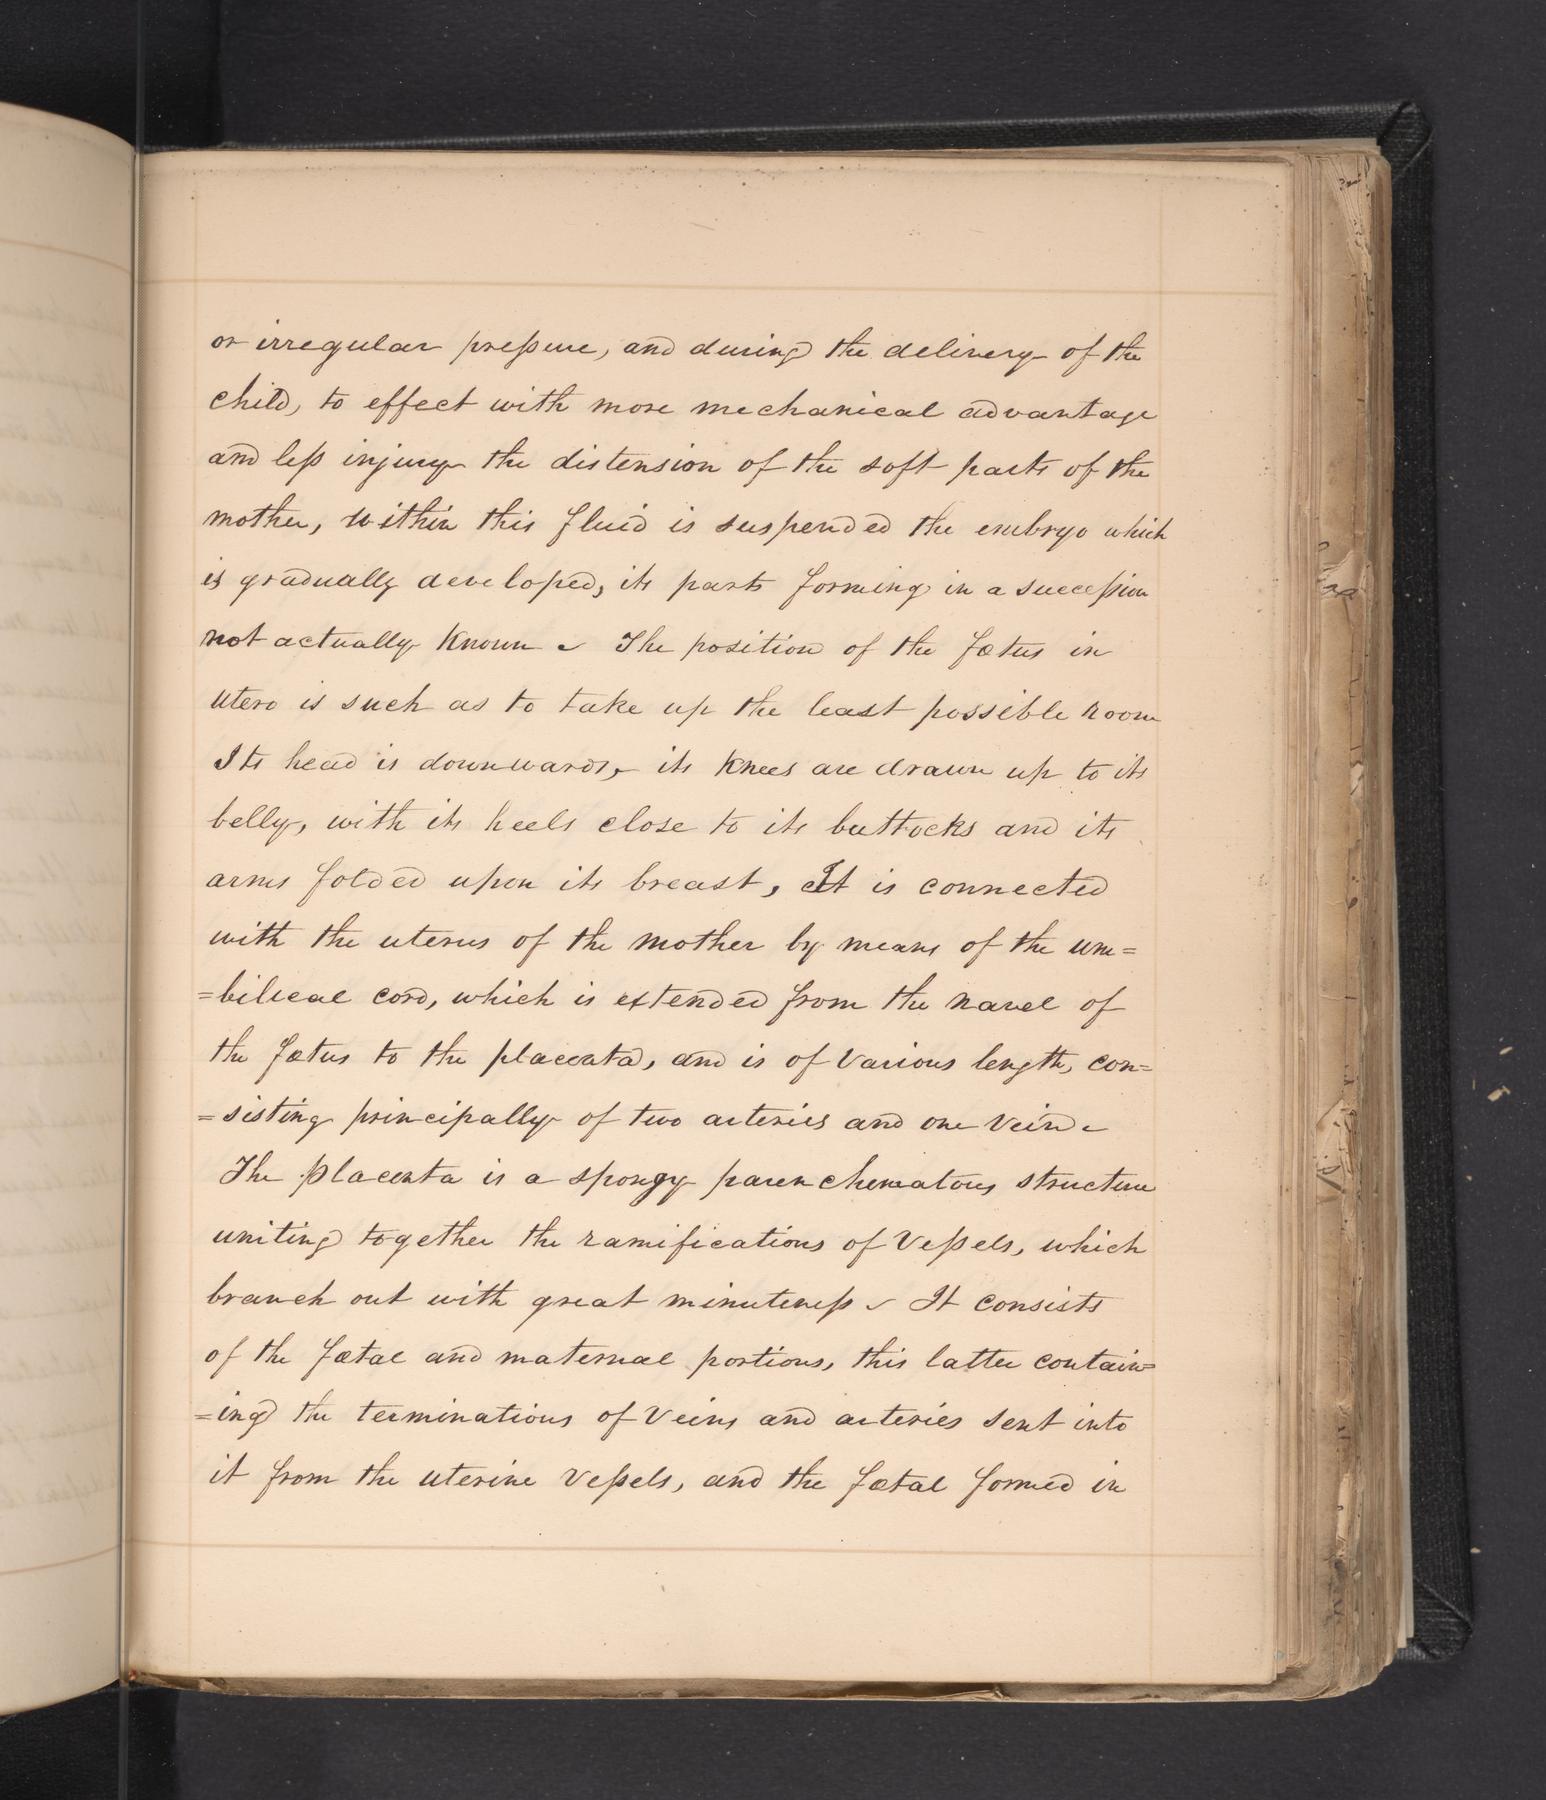 or irregular preſsure, and during the delivery of the
child, to effect with more mechanical advantage
and leſs injury the distension of the soft parts of the
mother, within this fluid is suspended the embryo which
is gradually developed, its parts forming in a succeſsion
not actually known - The position of the fœtus in
utero is such as to take up the least possible room
Its head is downwards, its knees are drawn up to its
belly, with its heels close to its buttocks and its
arms folded upon its breast, It is connected
with the uterus of the mother by means of the um=
=bilical cord, which is extended from the navel of
the fœtus to the placenta, and is of various length, con=
=sisting principally of two arteries and one vein -
The placenta is a spongy parenchematous structure
uniting together the ramifications of Veſsels, which
branch out with great minuteneſs - It consists
of the fœtal and maternal portions, this latter contain=
=ing the terminations of Veins and arteries sent into
it from the uterine Veſsels, and the fœtal formed in